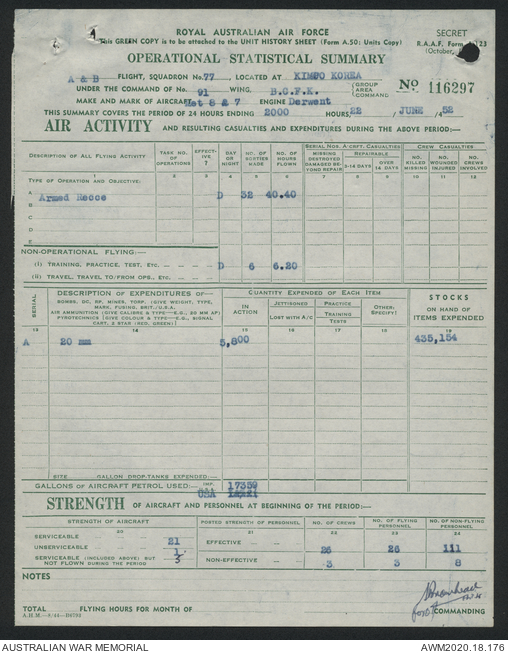 ROYAL AUSTRALIAN AIR FORCE
SECRET
This GREEN COPY is to be attached to the UNIT HISTORY SHEET (Form A.50: Units Copy)
R.A.A.F. Form 123
(October,
OPERATIONAL STATISTICAL SUMMARY
A & B FLIGHT, SQUADRON No. 77, LOCATED AT KIMPO KOREA
UNDER THE COMMAND OF No. 91 WING, B.C.F.K. (GROUP AREA COMMAND
No 116297
MAKE AND MARK OF AIRCRAFT Met 8 & 7 ENGINE Derwent
THIS SUMMARY COVERS THE PERIOD OF 24 HOURS ENDING 2000 HOURS, 22 JUNE / 52
AIR ACTIVITY AND RESULTING CASUALTIES AND EXPENDITURES DURING THE ABOVE PERIOD:—
DESCRIPTION OF ALL FLYING ACTIVITY
TASK NO. OF OPERATIONS
EFFECTIVE ?
DAY OR NIGHT
NO. OF SORTIES MADE
NO. OF HOURS FLOWN
SERIAL NOS. A/CRFT. CASUALTIES
MISSING DESTROYED DAMAGED BEYOND REPAIR
REPAIRABLE
2-14 DAYS
OVER 14 DAYS
CREW CASUALTIES
NO. KILLED MISSING
NO. WOUNDED INJURED
NO. CREWS INVOLVED
1 2 3 4 5 6 7 8 9 10 11 12
TYPE OF OPERATION AND OBJECTIVE:
A Armed Recce D 32 40.40
B
C
D
E
NON-OPERATIONAL FLYING:—
(i) TRAINING, PRACTICE, TEST, ETC. D 6 6.20
(ii) TRAVEL, TRAVEL TO/FROM OPS., ETC.
SERIAL
DESCRIPTION OF EXPENDITURES OF—
BOMBS, DC, RP, MINES, TORP. (GIVE WEIGHT, TYPE, MARK, FUSING, BRIT./U.S.A.)
AIR AMMUNITION (GIVE CALIBRE & TYPE—E.G., 20 MM AP)
PYROTECHNICS (GIVE COLOUR & TYPE—E.G., SIGNAL CART. 2 STAR (RED, GREEN))
QUANTITY EXPENDED OF EACH ITEM
IN ACTION
JETTISONED
LOST WITH A/C
PRACTICE
TRAINING
TESTS
OTHER: SPECIFY
STOCKS ON HAND OF ITEMS EXPENDED
13 14 15 16 17 18 19
A 20 mm 5,800 435,154
SIZE GALLON DROP-TANKS EXPENDED:—
GALLONS OF AIRCRAFT PETROL USED:— IMP. 17359
USA
STRENGTH OF AIRCRAFT AND PERSONNEL AT BEGINNING OF THE PERIOD:—
STRENGTH OF AIRCRAFT
POSTED STRENGTH OF PERSONNEL
NO. OF CREWS
NO. OF FLYING PERSONNEL
NO. OF NON-FLYING PERSONNEL
20 21 22 23 24
SERVICEABLE 21
UNSERVICEABLE 1
SERVICEABLE (INCLUDED ABOVE) BUT NOT FLOWN DURING THE PERIOD 3
EFFECTIVE 26 26 111
NON-EFFECTIVE 3 3 8
NOTES
TOTAL FLYING HOURS FOR MONTH OF
COMMANDING
AUSTRALIAN WAR MEMORIAL
AWM2020.18.176